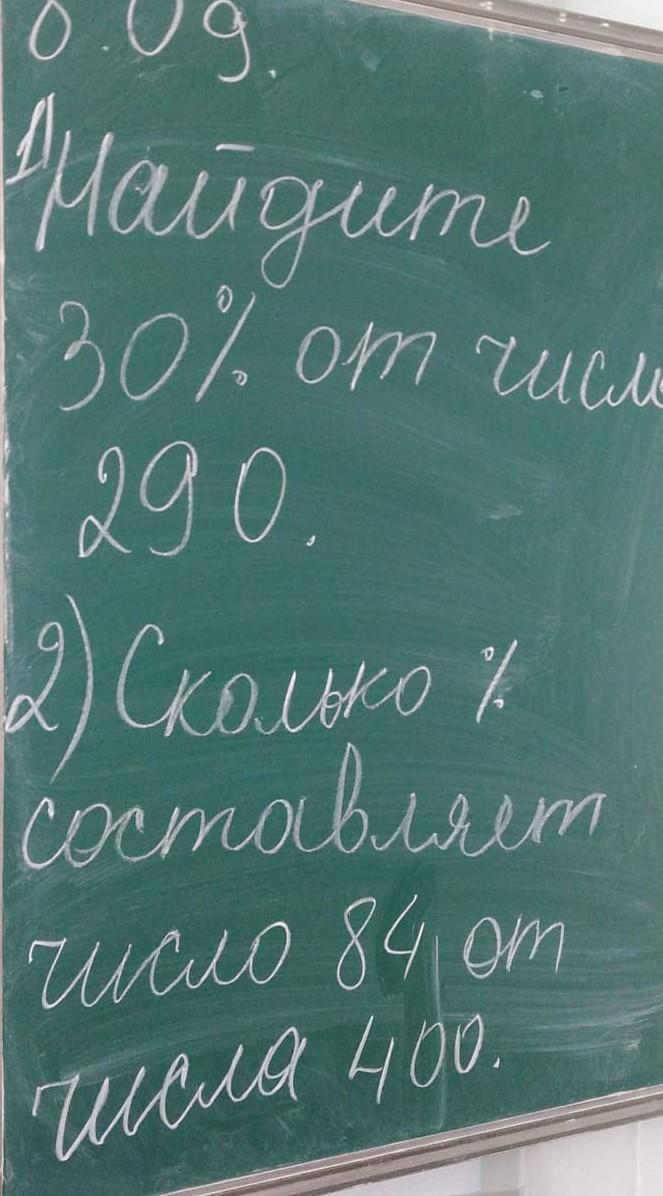 1) Найдите
30% от числ
290.
2) Сколько %
составляет
число 84 от
числа 400.